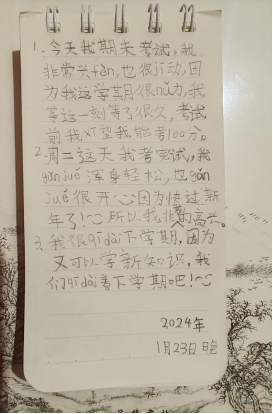 1.今天我期末考试,我
非常兴fèn,也很jī动,因
为我这学期很nǔ力,我
等这一刻等了很久,考试
前我xī望我能考100分。
2.周二这天我考完试,我
gǎn jué浑身轻松,也gǎn
jué很开心因为快过新
年了!~所以我非常的高兴。
3.我很qī dài下学期,因为
又可以学新知识,我
们qī dài着下学期吧!~
2024年
1月23日